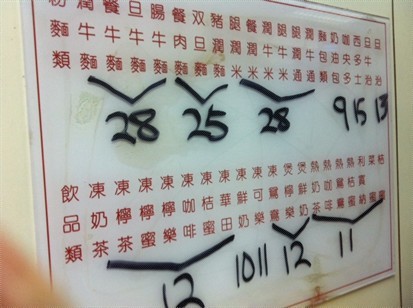 粉麵類
潤牛麵
餐牛麵
旦牛麵
腸牛麵
餐肉麵
双旦麵
豬潤麵
腿潤米
餐潤米
潤牛米
腿牛米
腿潤通
麵包類
奶油多
咖央多
西多士
旦牛治
旦治
28
25
28
9
15
13
飲品類
凍奶茶
凍檸茶
凍檸蜜
凍檸樂
凍咖啡
凍桔蜜
凍華田
凍鮮奶
凍可樂
凍鴛鴦
煲檸樂
煲鮮奶
熱奶茶
熱咖啡
熱鴛鴦
熱檸蜜
利賓納
菜蜜
桔蜜
12
10
11
12
11